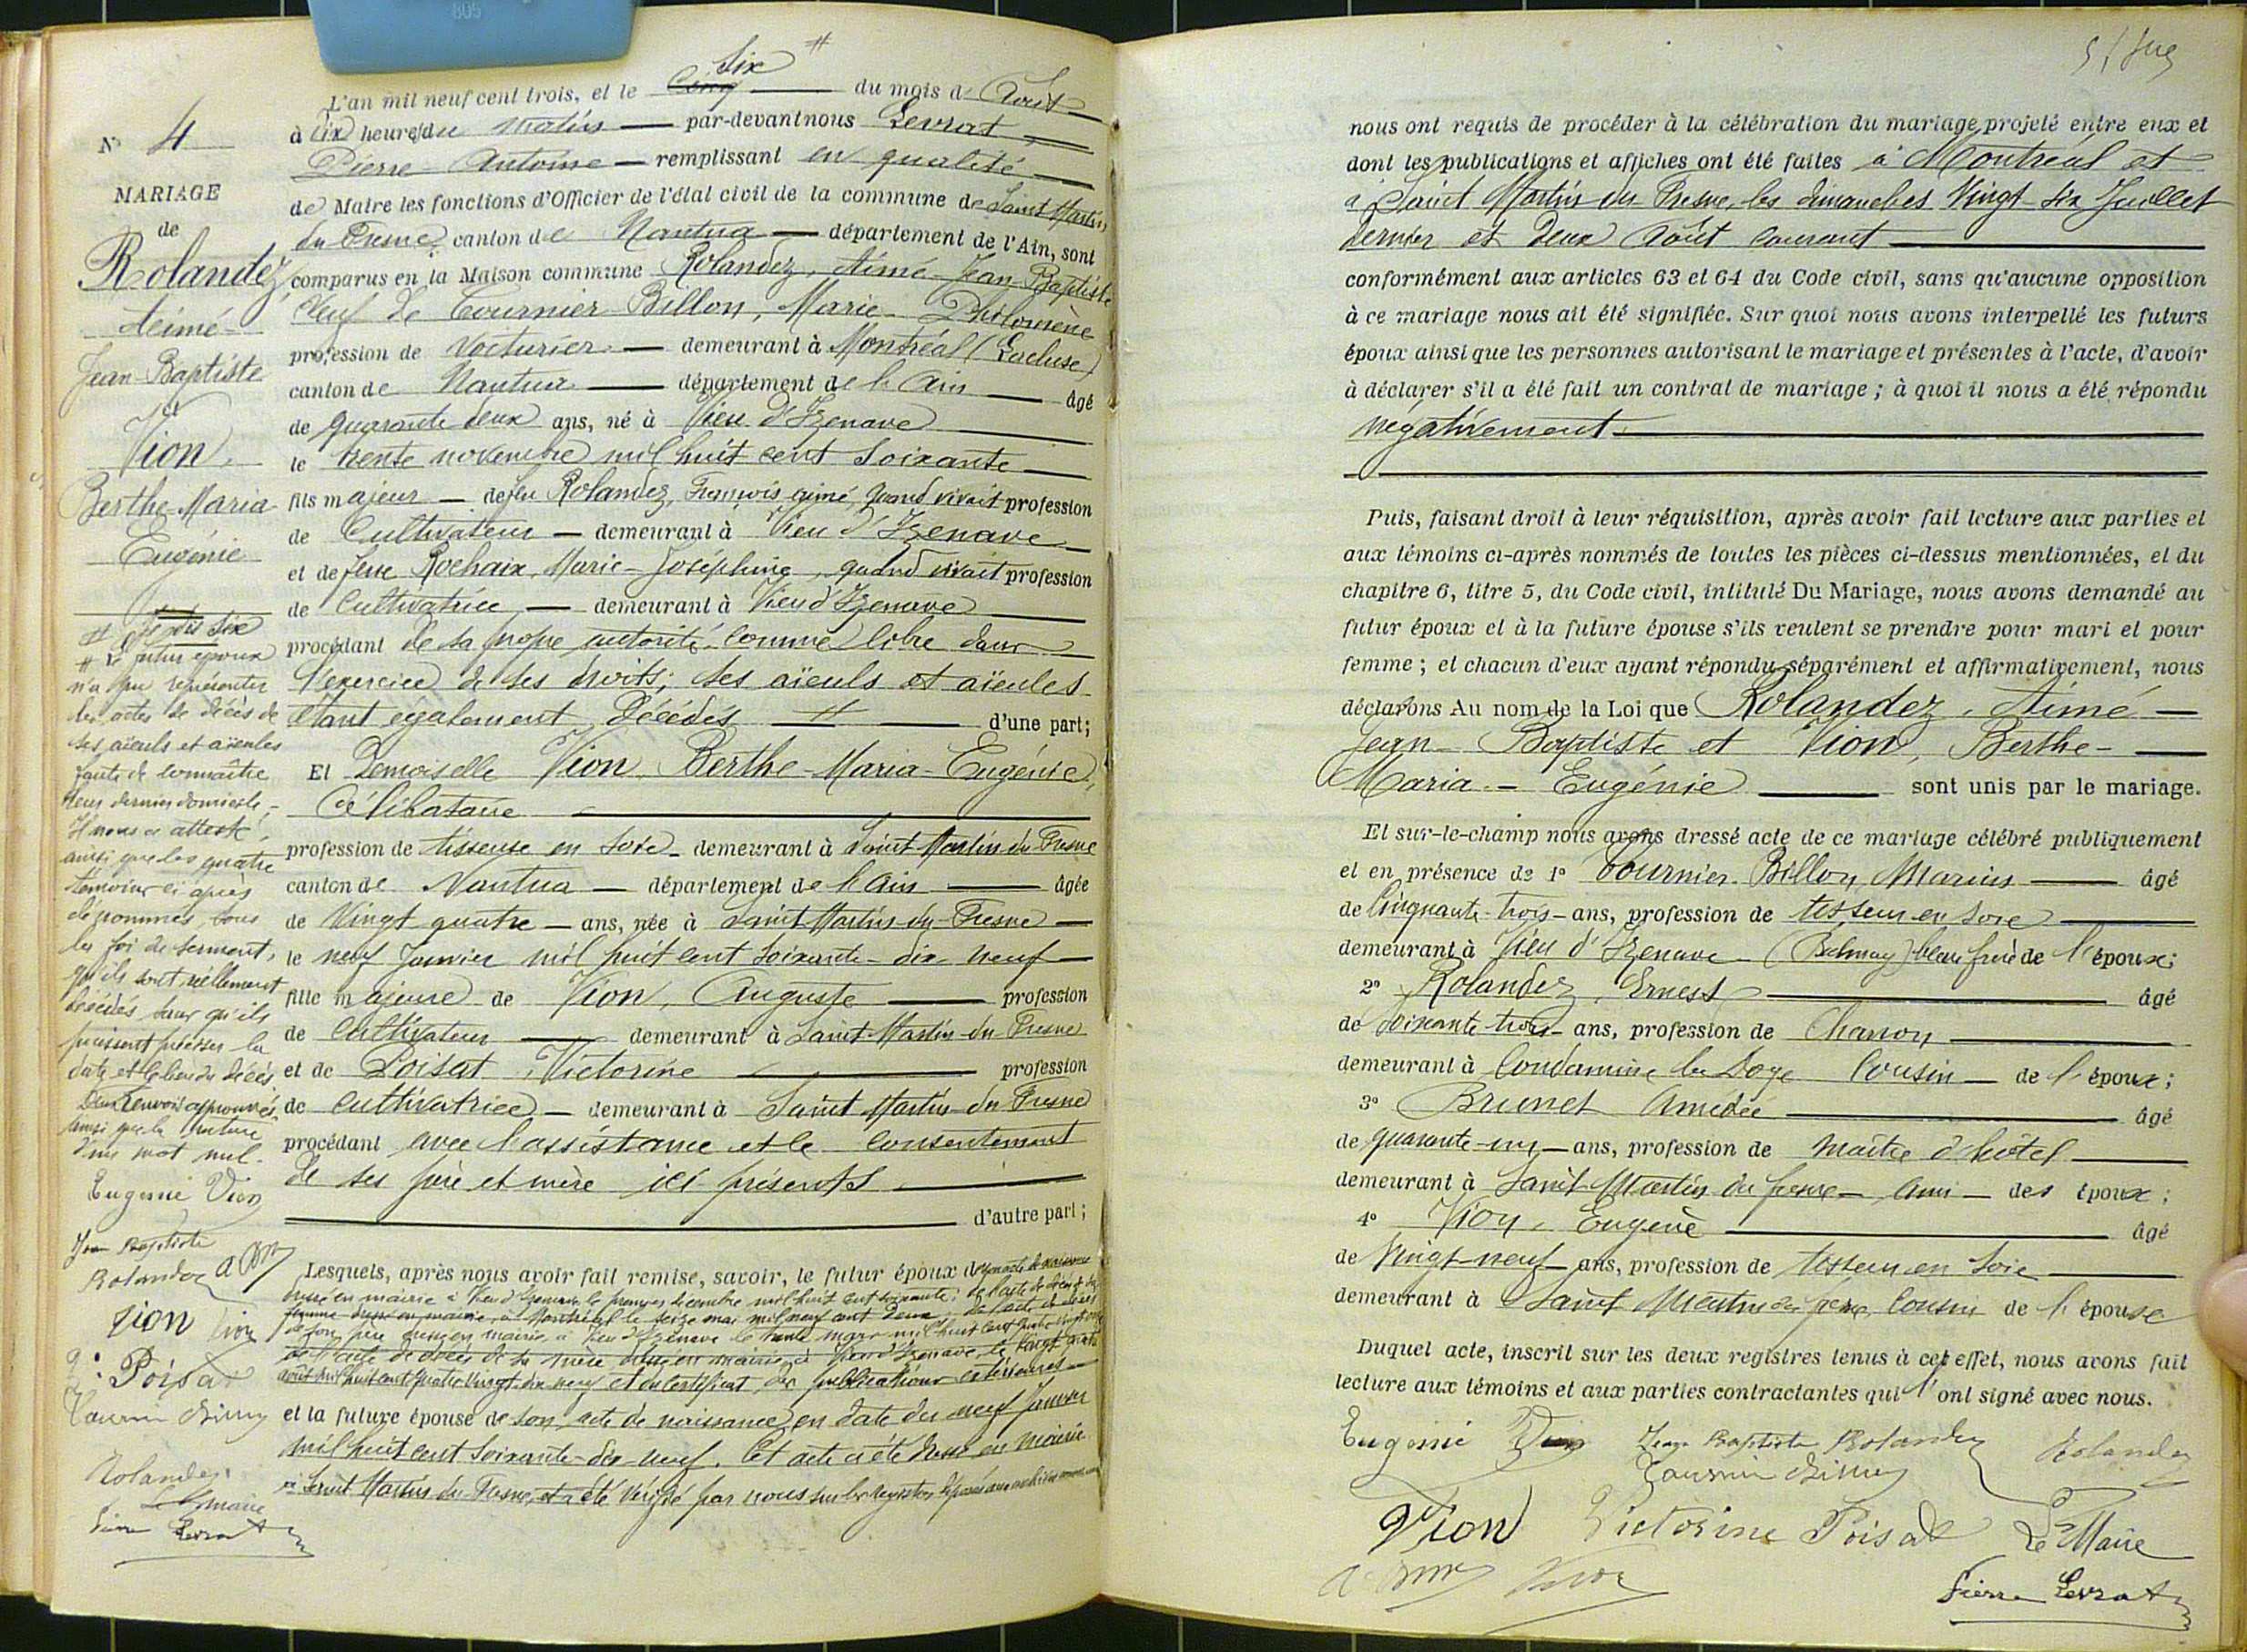 805
N° 4
MARIAGE
de
Rolandez,
Aimé-
Jean-Baptiste
et
Vion,
Berthe-Maria-
Eugénie
# Je dis Six
# Le futur époux
n'a pu représenter
les actes de décès de
ses aïeuls et aïeules
faute de connaître
leur dernier domicile,
Il nous a attesté,
ainsi que les quatre
témoins ci après
dénommés, sous
la foi du serment,
qu'ils sont réellement
décédés sans qu'ils
puissent préciser la
date et le lieu du décès.
Deux renvois approuvés
ainsi que la rature
d'un mot nul.
Eugenie Vion
Jean Baptiste
Rolandez
Vion Vion
Poisat
Rolandez
Le Maire
Pierre Levrat
Six #
L'an mil neuf cent trois, et le Cinq du mois d' Août
à Dix heures du matin par-devant nous Levrat,
Pierre-Antoine remplissant en qualité
de Maire les fonctions d'Officier de l'état civil de la commune de Saint Martin
du Fresne, canton de Nantua département de l'Ain, sont
comparus en la Maison commune Rolandez, Aimé-Jean-Baptiste
Veuf de Tournier Billon, Marie-Philomène
profession de Voiturier demeurant à Montréal (Lacluse)
canton de Nantua département de l'Ain âgé
de quarante deux ans, né à Vieu d'Izenave
le trente novembre mil huit cent soixante
fils majeur de feu Rolandez, François aimé, quand vivait profession
de Cultivateur demeurant à Vieu d'Izenave
et de feue Rochaix, Marie-Joséphine, quand vivait profession
de Cultivatrice demeurant à Vieu d'Izenave
procédant de sa propre autorité comme libre dans
l'exercice de ses droits; ses aïeuls et aïeules
étant également décédés # d'une part;
Et Demoiselle Vion Berthe-Maria-Eugénie,
Célibataire
profession de tisseuse en soie demeurant à Saint Martin du Fresne
canton de Nantua département de l'Ain âgée
de Vingt quatre ans, née à Saint Martin du Fresne
le neuf Janvier mil huit cent soixante-dix-neuf
fille majeure de Vion, Auguste profession
de Cultivateur demeurant à Saint-Martin-du-Fresne
et de Poisat, Victorine profession
de cultivatrice demeurant à Saint Martin-du Fresne
procédant avec l'assistance et le consentement
de ses père et mère ici présents
d'autre part;
Lesquels, après nous avoir fait remise, savoir, le futur époux de son acte de naissance
dressé en mairie à Vieu d'Izenave le premier décembre mil huit cent soixante; de l'acte de décès de sa
femme dressé en mairie, à Montréal le seize mai mil neuf cent deux; de l'acte de décès
de son père dressé en mairie, à Vieu d'Izenave le trente mars mil huit cent quatre vingt
de l'acte de décès de sa mère dressé en mairie à Vieu d'Izenave le vingt
août mil huit cent quatre vingt dix neuf et du certificat des publications extérieures
et la future épouse de son acte de naissance en date du neuf Janvier
mil huit cent soixante-dix-neuf. Cet acte a été dressé en mairie
à Saint Martin du Fresne, et a été vérifié par nous sur les registres déposés aux archives
nous ont requis de procéder à la célébration du mariage projeté entre eux et
dont les publications et affiches ont été faites à Montréal et
à Saint Martin du Fresne, les dimanches Vingt six Juillet
dernier et Deux Août courant
conformément aux articles 63 et 64 du Code civil, sans qu'aucune opposition
à ce mariage nous ait été signifiée. Sur quoi nous avons interpellé les futurs
époux ainsi que les personnes autorisant le mariage et présentes à l'acte, d'avoir
à déclarer s'il a été fait un contrat de mariage; à quoi il nous a été répondu
négativement.
Puis, faisant droit à leur réquisition, après avoir fait lecture aux parties et
aux témoins ci-après nommés de toutes les pièces ci-dessus mentionnées, et du
chapitre 6, titre 5, du Code civil, intitulé Du Mariage, nous avons demandé au
futur époux et à la future épouse s'ils veulent se prendre pour mari et pour
femme; et chacun d'eux ayant répondu séparément et affirmativement, nous
déclarons Au nom de la Loi que Rolandez, Aimé
Jean-Baptiste et Vion, Berthe-
Maria-Eugénie sont unis par le mariage.
Et sur-le-champ nous avons dressé acte de ce mariage célébré publiquement
et en présence de 1° Tournier-Billon, Marius âgé
de Cinquante-trois ans, profession de tisseur en soie
demeurant à Vieu d'Izenave (Balmay) beau frère de l'époux;
2° Rolandez, Ernest âgé
de soixante trois ans, profession de Charron
demeurant à Condamine la Doye Cousin de l'époux;
3° Brunet Amédée âgé
de quarante-un ans, profession de maître d'hôtel
demeurant à Saint Martin du fresne ami des époux;
4° Vion, Eugène âgé
de Vingt-neuf ans, profession de tisseur en soie
demeurant à Saint Martin du fresne, Cousin de l'épouse
Duquel acte, inscrit sur les deux registres tenus à cet effet, nous avons fait
lecture aux témoins et aux parties contractantes qui l'ont signé avec nous.
Eugenie Vion Jean Baptiste Rolandez Rolandez
Vion Victorine Poisat Le Maire
Vion Pierre Levrat